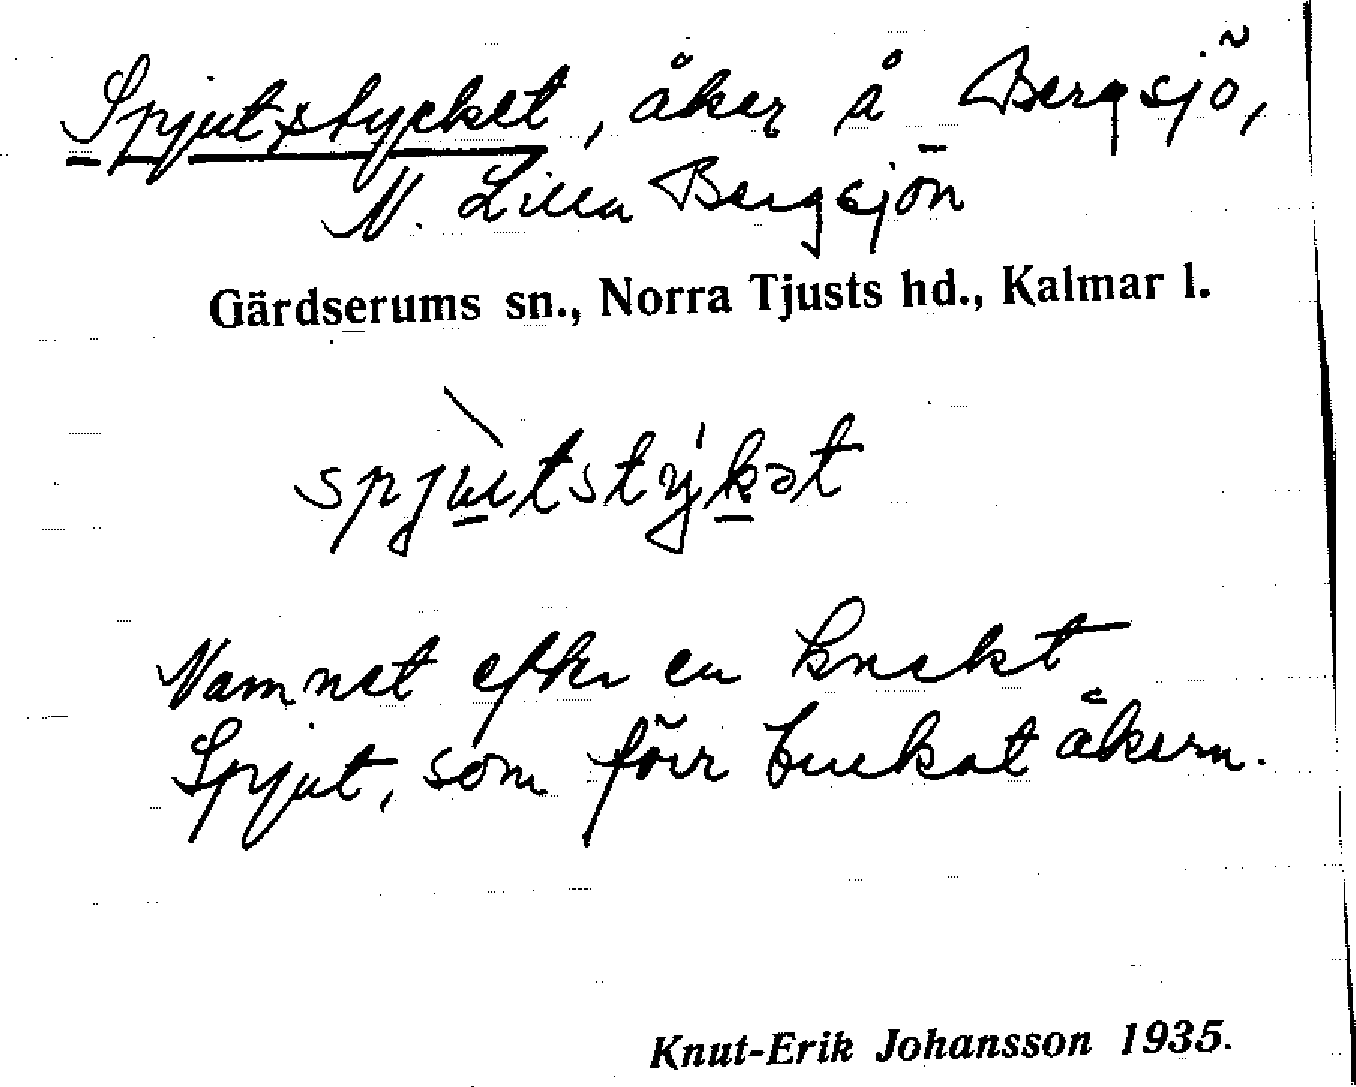 Spjutstycket, åker å Bergsjö,
N. Lilla Bergsjön
Gärdserums sn., Norra Tjusts hd., Kalmar l.
spjùtstýkət
Namnet efter en knekt
Spjut, som förr brukat åkern.
Knut-Erik Johansson 1935.